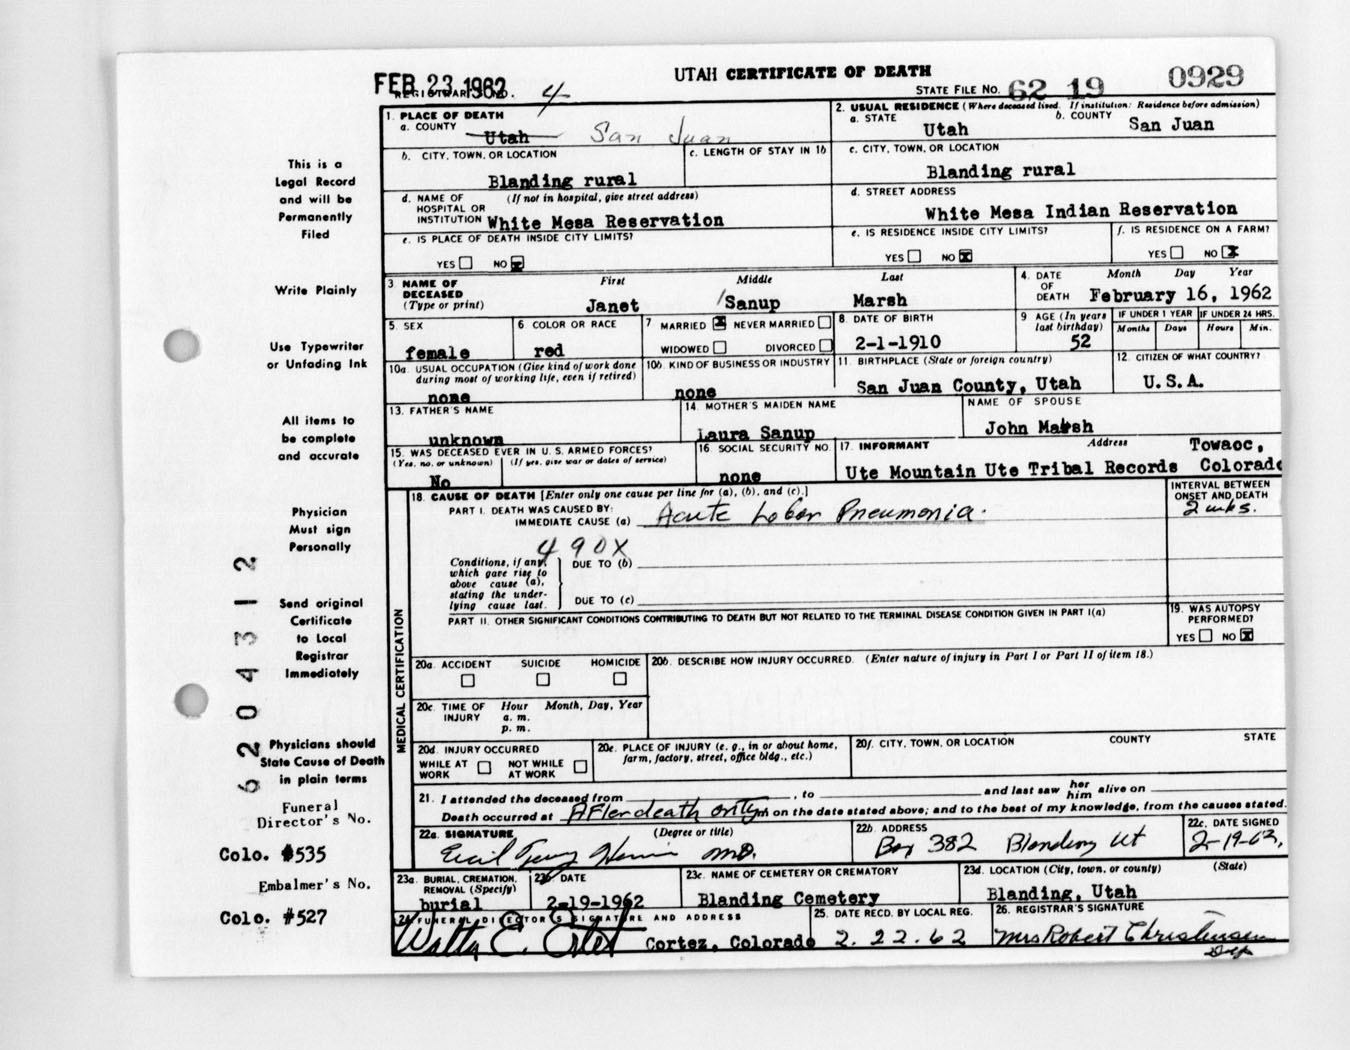 FEB 23 1962
UTAH CERTIFICATE OF DEATH
REGISTRAR'S NO. 4
STATE FILE NO. 62 19 0929
This is a
Legal Record
and will be
Permanently
Filed
Write Plainly
Use Typewriter
or Unfading Ink
All items to
be complete
and accurate
Physician
Must sign
Personally
Send original
Certificate
to Local
Registrar
Immediately
Physicians should
State Cause of Death
in plain terms
Funeral
Director's No.
Colo. #535
Embalmer's No.
Colo. #527
6204312
1. PLACE OF DEATH
a. COUNTY
Utah San Juan
2. USUAL RESIDENCE (Where deceased lived. If institution: Residence before admission)
a. STATE Utah
b. COUNTY San Juan
b. CITY, TOWN, OR LOCATION
Blanding rural
c. LENGTH OF STAY IN 1b
c. CITY, TOWN, OR LOCATION
Blanding rural
d. NAME OF HOSPITAL OR INSTITUTION (If not in hospital, give street address)
White Mesa Reservation
d. STREET ADDRESS
White Mesa Indian Reservation
e. IS PLACE OF DEATH INSIDE CITY LIMITS?
YES NO x
e. IS RESIDENCE INSIDE CITY LIMITS?
YES NO x
f. IS RESIDENCE ON A FARM?
YES NO x
3 NAME OF DECEASED (Type or print)
First Middle Last
Janet Sanup Marsh
4. DATE OF DEATH Month Day Year
February 16, 1962
5. SEX
female
6 COLOR OR RACE
red
7 MARRIED x NEVER MARRIED
WIDOWED DIVORCED
8. DATE OF BIRTH
2-1-1910
9 AGE (In years last birthday)
52
IF UNDER 1 YEAR
Months Days
IF UNDER 24 HRS.
Hours Min.
10a. USUAL OCCUPATION (Give kind of work done during most of working life, even if retired)
none
10b. KIND OF BUSINESS OR INDUSTRY
none
11. BIRTHPLACE (State or foreign country)
San Juan County, Utah
12. CITIZEN OF WHAT COUNTRY?
U.S.A.
13. FATHER'S NAME
unknown
14. MOTHER'S MAIDEN NAME
Laura Sanup
NAME OF SPOUSE
John Marsh
15. WAS DECEASED EVER IN U. S. ARMED FORCES?
(Yes, no, or unknown) (If yes, give war or dates of service)
No
16. SOCIAL SECURITY NO.
none
17. INFORMANT Address
Ute Mountain Ute Tribal Records Towaoc, Colorado
MEDICAL CERTIFICATION
18. CAUSE OF DEATH [Enter only one cause per line for (a), (b), and (c).]
PART I. DEATH WAS CAUSED BY:
IMMEDIATE CAUSE (a) Acute Lobar Pneumonia.
INTERVAL BETWEEN ONSET AND DEATH
2 wks.
490X
Conditions, if any, which gave rise to above cause (a), stating the underlying cause last.
DUE TO (b)
DUE TO (c)
PART II. OTHER SIGNIFICANT CONDITIONS CONTRIBUTING TO DEATH BUT NOT RELATED TO THE TERMINAL DISEASE CONDITION GIVEN IN PART I(a)
19. WAS AUTOPSY PERFORMED?
YES NO x
20a. ACCIDENT SUICIDE HOMICIDE
20b. DESCRIBE HOW INJURY OCCURRED. (Enter nature of injury in Part I or Part II of item 18.)
20c. TIME OF INJURY Hour Month, Day, Year
a. m.
p. m.
20d. INJURY OCCURRED
WHILE AT WORK NOT WHILE AT WORK
20e. PLACE OF INJURY (e. g., in or about home, farm, factory, street, office bldg., etc.)
20f. CITY, TOWN, OR LOCATION COUNTY STATE
21. I attended the deceased from , to and last saw her him alive on
Death occurred at After death only m on the date stated above; and to the best of my knowledge, from the causes stated.
22a. SIGNATURE (Degree or title)
M.D.
22b. ADDRESS
Box 382 Blanding Ut
22c. DATE SIGNED
2-19-62,
23a. BURIAL, CREMATION, REMOVAL (Specify)
burial
23b. DATE
2-19-1962
23c. NAME OF CEMETERY OR CREMATORY
Blanding Cemetery
23d. LOCATION (City, town, or county) (State)
Blanding, Utah
24 FUNERAL DIRECTOR'S SIGNATURE AND ADDRESS
Cortez, Colorado
25. DATE RECD. BY LOCAL REG.
2.22.62
26. REGISTRAR'S SIGNATURE
Mrs Robert Christensen
Dep